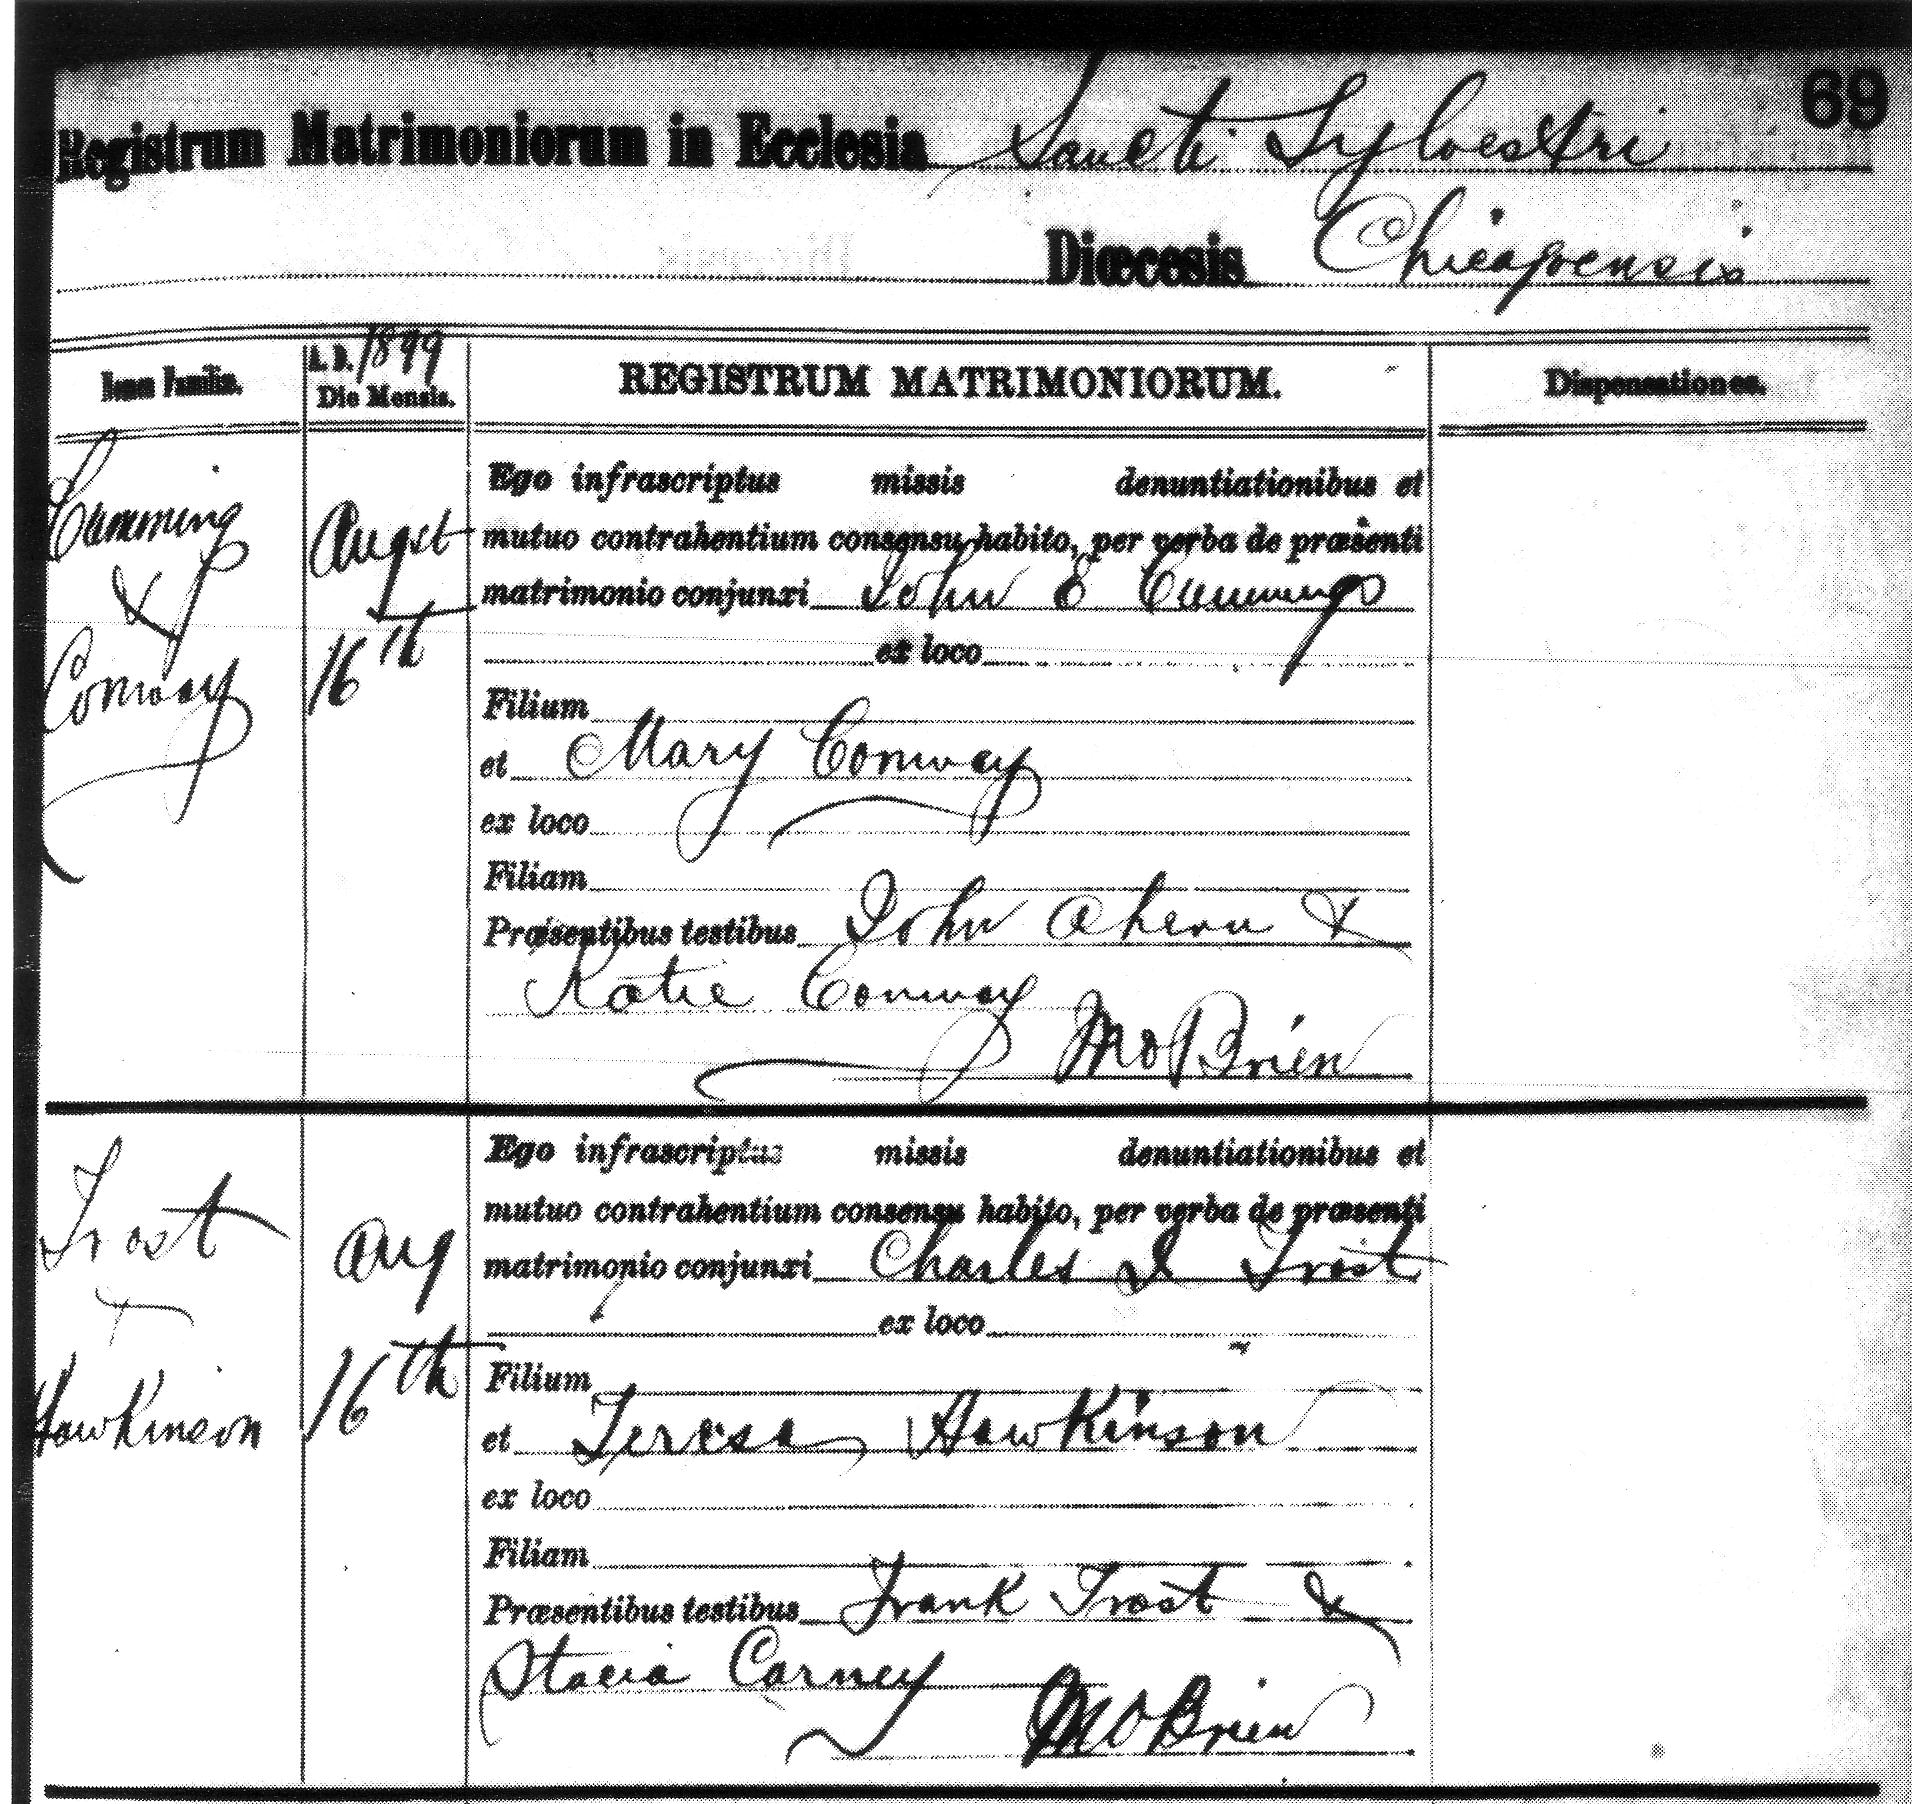 69
Registrum Matrimoniorum in Ecclesia Sancti Sylvestri
Diœcesis Chicagoensis
Nomen Familiæ.
A. D. 1899
Die Mensis.
REGISTRUM MATRIMONIORUM.
Dispensationes.
Cumming
&
Conway
Augst
16th
Ego infrascriptus missis denuntiationibus et
mutuo contrahentium consensu habito, per verba de præsenti
matrimonio conjunxi John E Cummings
ex loco
Filium
et Mary Conway
ex loco
Filiam
Præsentibus testibus John Ahern &
Katie Conway
M O'Brien
Trost
&
Hawkinson
Aug
16th
Ego infrascriptus missis denuntiationibus et
mutuo contrahentium consensu habito, per verba de præsenti
matrimonio conjunxi Charles I Trost
ex loco
Filium
et Teresa Hawkinson
ex loco
Filiam
Præsentibus testibus Frank Trost &
Stacia Carney
M O'Brien